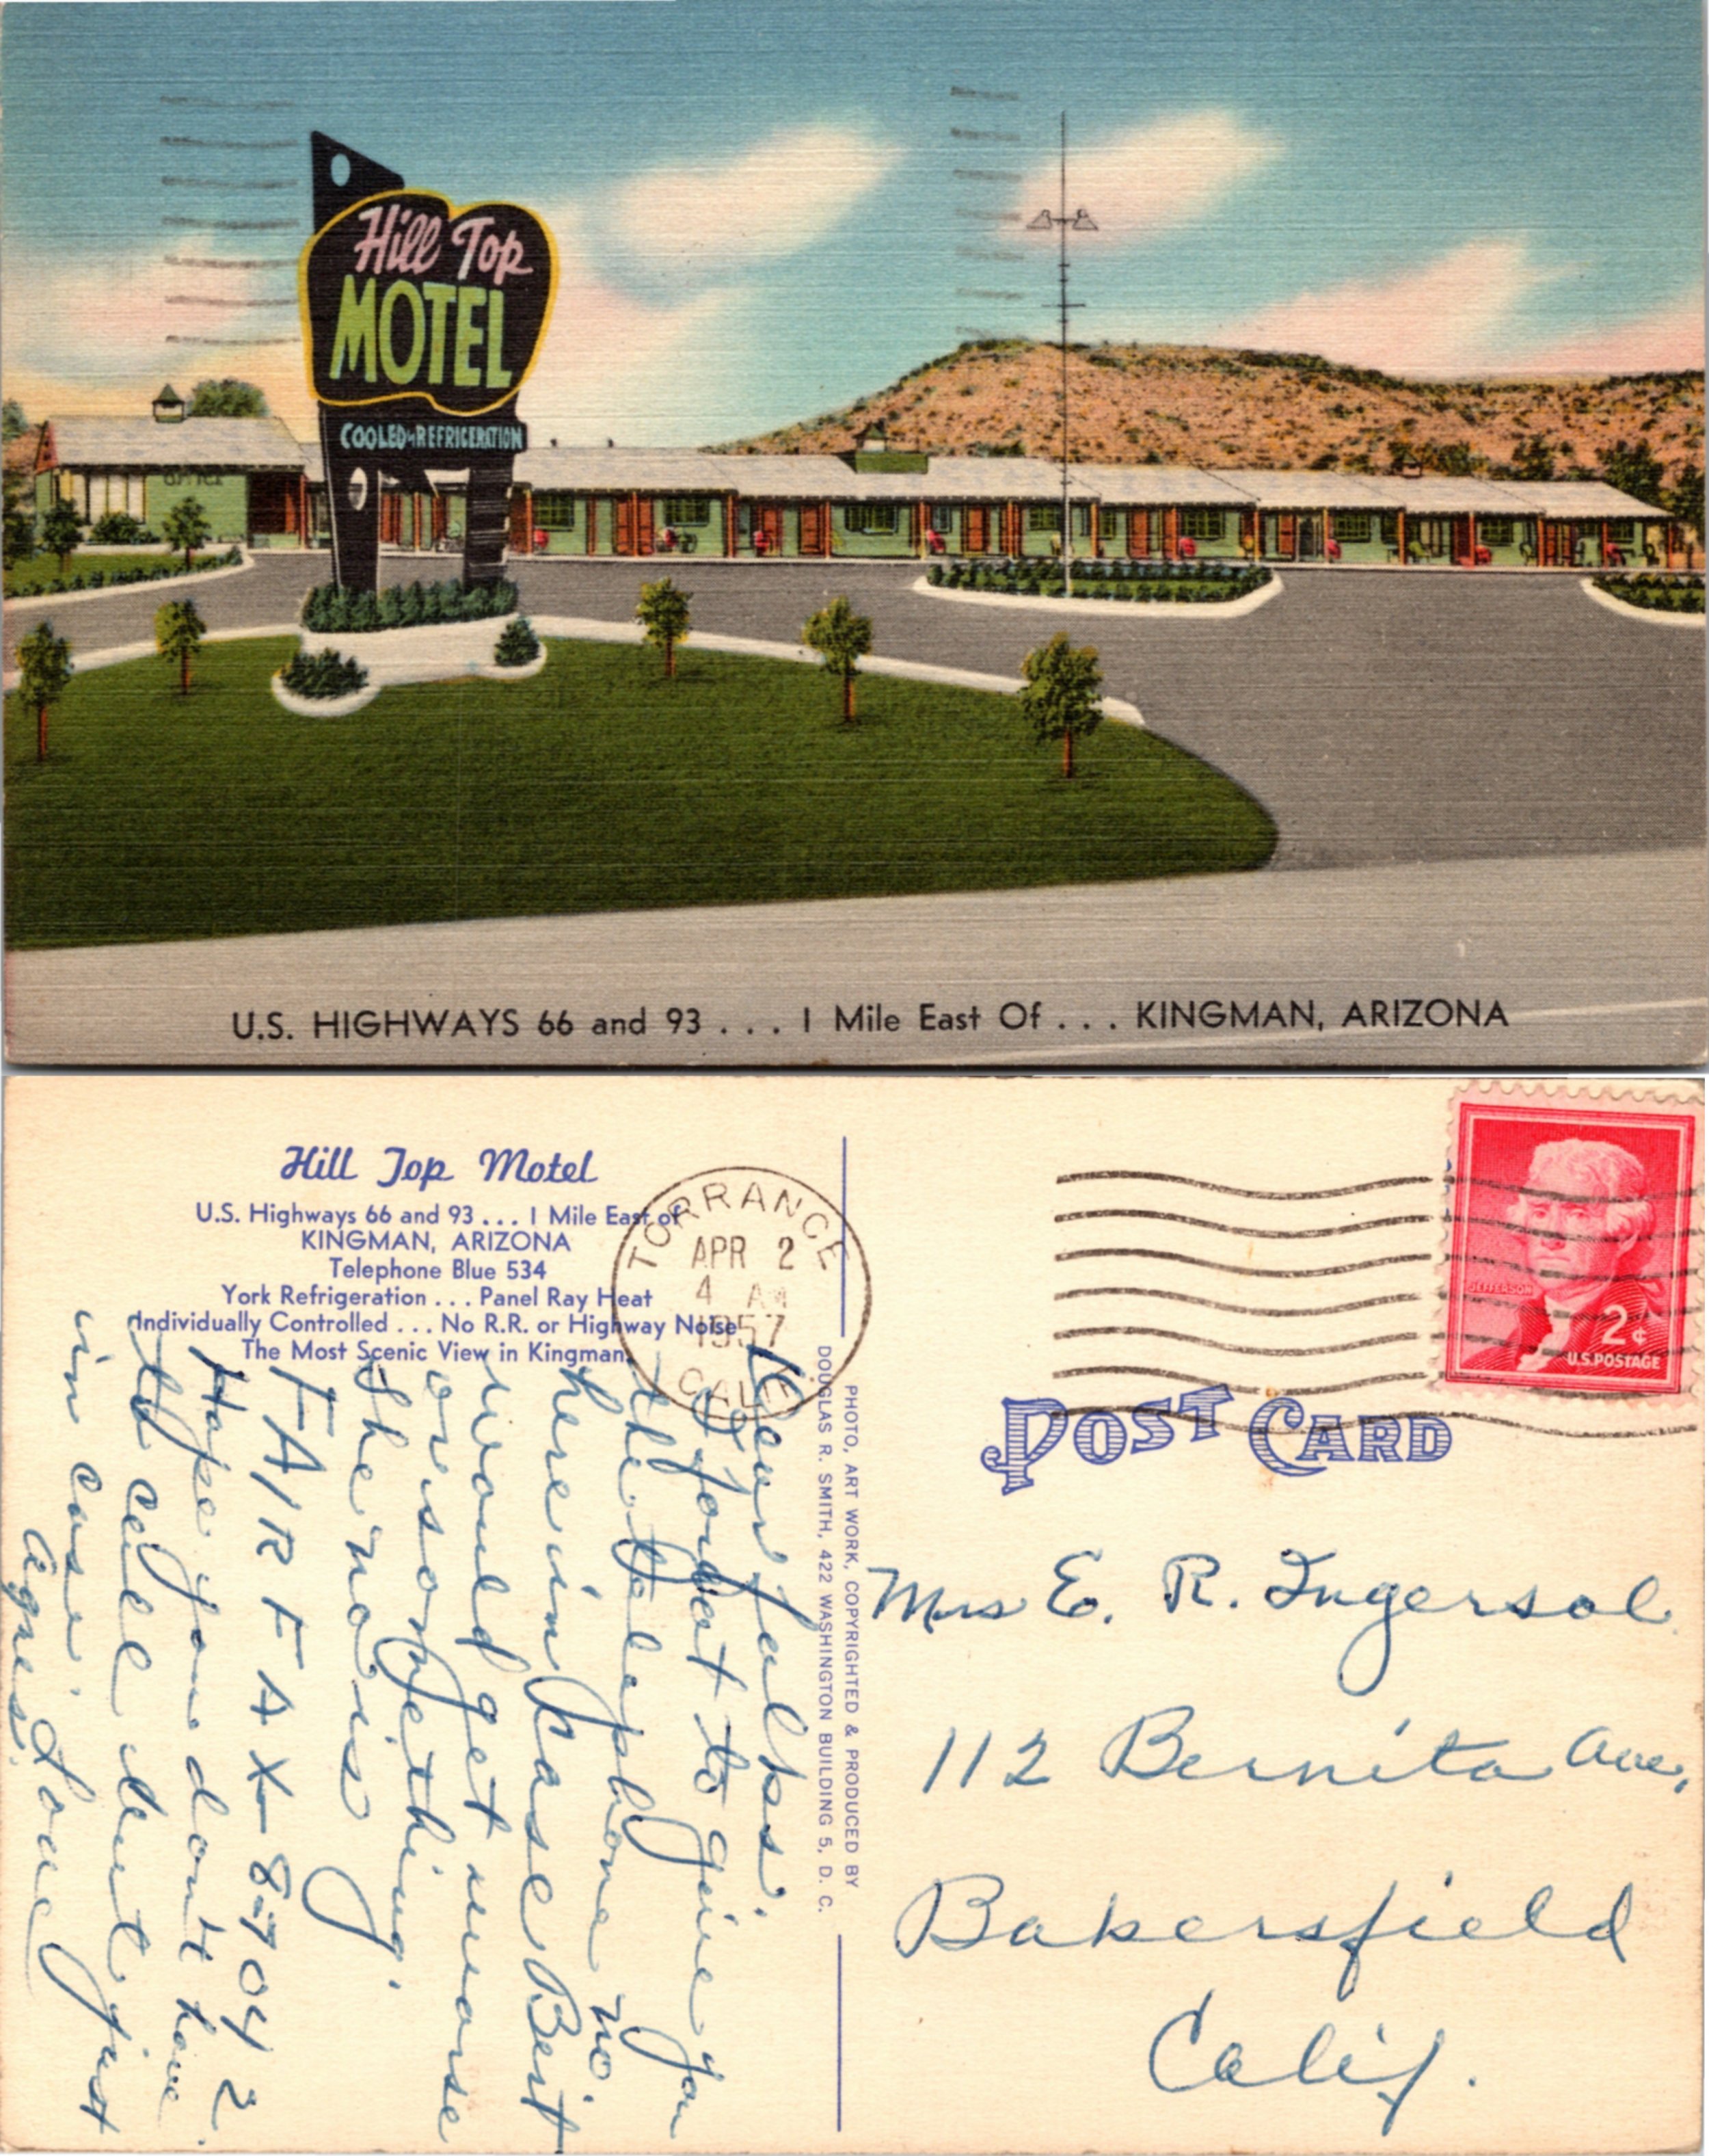 Hill Top
MOTEL
COOLED by REFRIGERATION
OFFICE
U.S. HIGHWAYS 66 and 93 . . . 1 Mile East Of . . . KINGMAN, ARIZONA
Hill Top Motel
U.S. Highways 66 and 93 . . . 1 Mile East of
KINGMAN, ARIZONA
Telephone Blue 534
York Refrigeration . . . Panel Ray Heat
Individually Controlled . . . No R.R. or Highway Noise
The Most Scenic View in Kingman.
TORRANCE
APR 2
4 AM
1957
CALIF
JEFFERSON
2¢
U.S. POSTAGE
POST CARD
PHOTO, ART WORK, COPYRIGHTED & PRODUCED BY
DOUGLAS R. SMITH, 422 WASHINGTON BUILDING 5, D. C.
Dear folks.
I forgot to give you
the telephone no.
here in case Bert
would get worse
or something.
The no is
FAIRFAX-87042
Hope you dont have
to call but just
in case. Love
Agnes.
Mrs E. R. Ingersol
112 Bernita Ave,
Bakersfield
Calif.